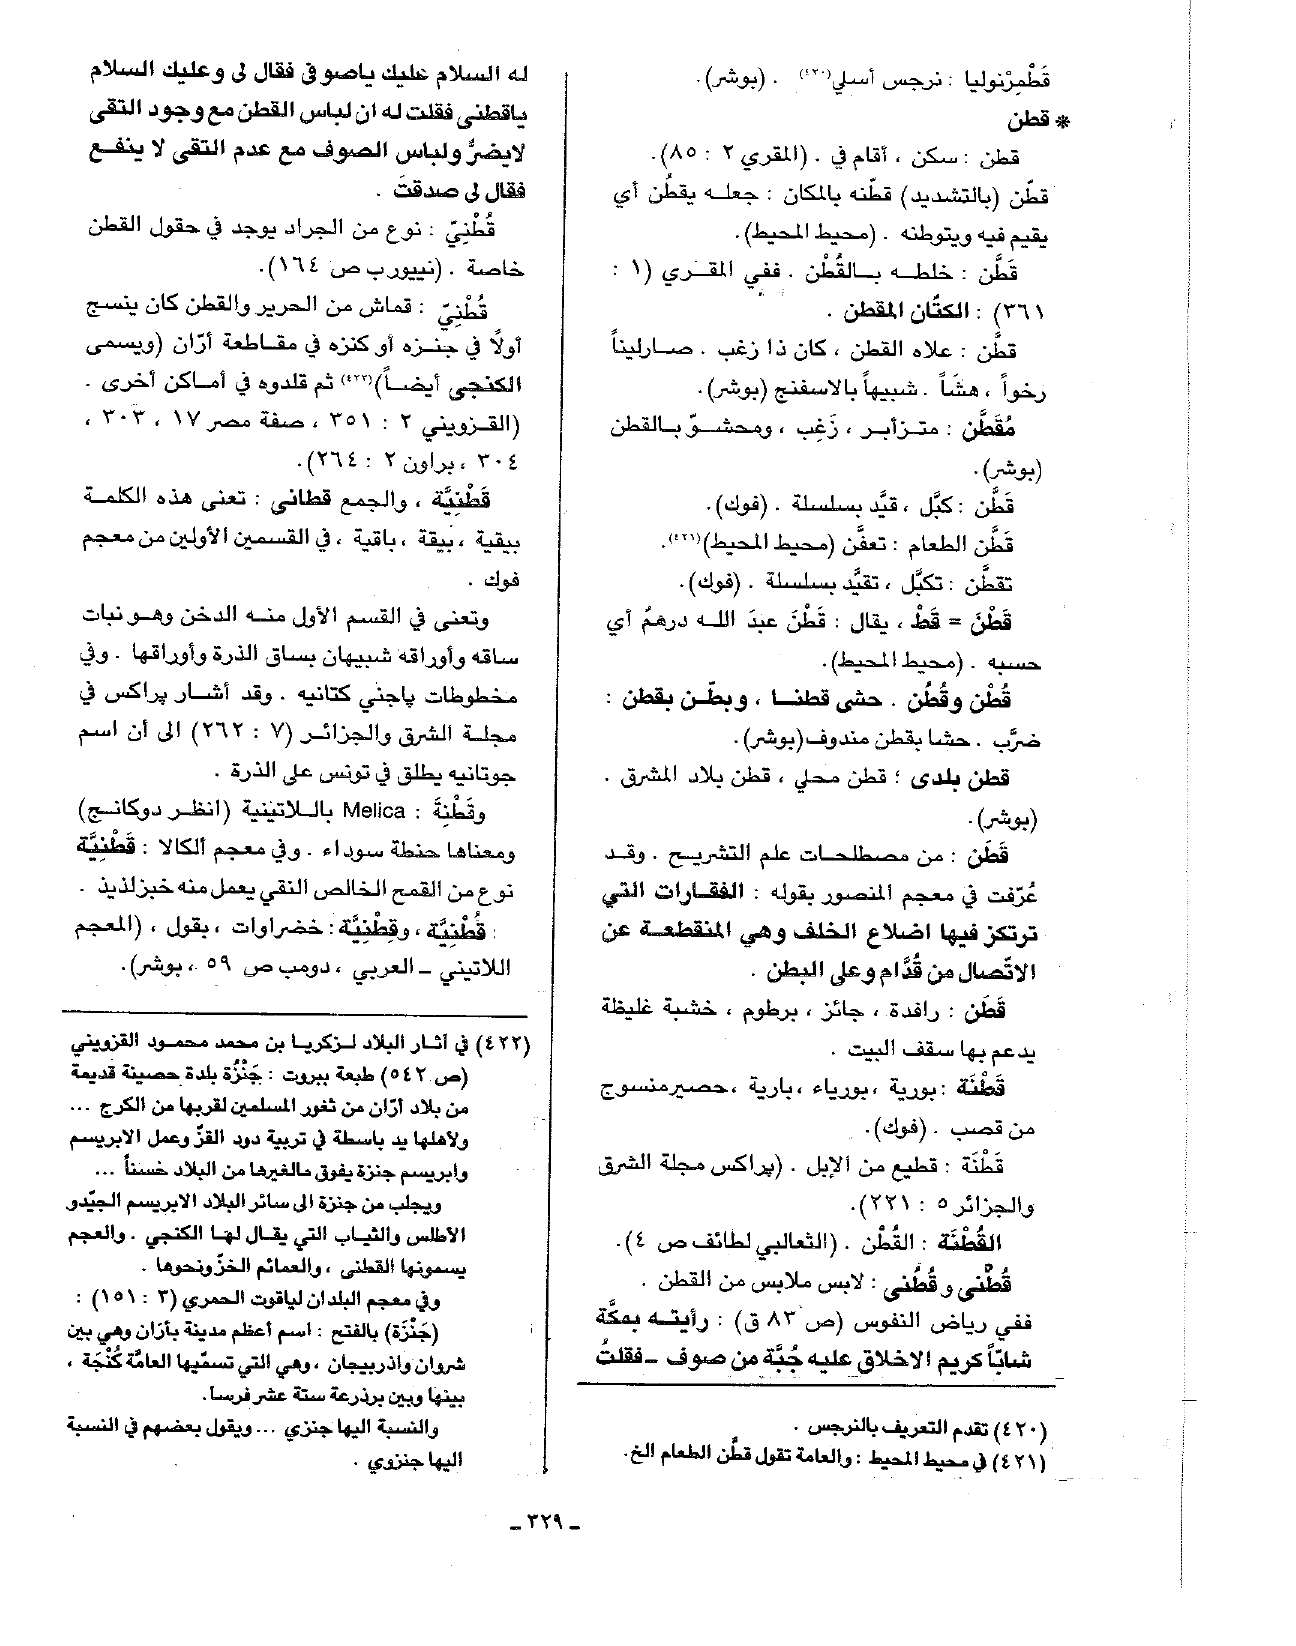 قَطْمِرْنوليا : نرجس أسلي(٤٢٠) . (بوشر).
* قطن
قطن : سكن ، أقام في . (المقري ٢ : ٨٥).
قطّن (بالتشديد) قطّنه بالمكان : جعلـه يقطُن أي
يقيم فيه ويتوطنه . (محيط المحيط).
قَطَّن : خلطـه بـالقُطْن . ففي المقـري (١ :
٣٦١) : الكتّان المقطن .
قطَّن : علاه القطن ، كان ذا زغب . صـارليناً
رخواً ، هشّاً . شبيهاً بالاسفنج (بوشر).
مُقَطَّن : متـزأبـر ، زَغِب ، ومحشـوّ بـالقطن
(بوشر).
قَطَّن : كبَّل ، قيَّد بسلسلة . (فوك).
قَطَّن الطعام : تعفّن (محيط المحيط)(٤٢١).
تقطَّن : تكبَّل ، تقيَّد بسلسلة . (فوك).
قَطْنَ = قَطْ ، يقال : قَطْنَ عبدَ اللـه درهمٌ أي
حسبه . (محيط المحيط).
قُطْن وقُطُن . حشى قطنـا ، وبطّـن بقطن :
ضرَّب . حشا بقطن مندوف (بوشر).
قطن بلدى ؛ قطن محلي ، قطن بلاد المشرق .
(بوشر).
قَطَن : من مصطلحات علم التشريـح . وقـد
عُرّفت في معجم المنصور بقوله : الفقـارات التي
ترتكز فيها اضلاع الخلف وهي المنقطعـة عن
الاتّصال من قُدَّام وعلى البطن .
قَطَن : رافدة ، جائز ، برطوم ، خشبة غليظة
يدعم بها سقف البيت .
قَطْنَة : بورية ، بورياء ، بارية ، حصير منسوج
من قصب . (فوك).
قَطْنَة : قطيع من الإبل . (پراكس مجلة الشرق
والجزائر ٥ : ٢٢١).
القُطْنَة : القُطْن . (الثعالبي لطائف ص ٤).
قُطْنى و قُطُنى : لابس ملابس من القطن .
ففي رياض النفوس (ص ٨٣ ق) : رأيتـه بمكَّة
شابّاً كريم الاخلاق عليه جُبَّة من صوف ــ فقلتُ
(٤٢٠) تقدم التعريف بالنرجس .
(٤٢١) في محيط المحيط : والعامة تقول قطَّن الطعام الخ.
له السلام عليك ياصو في فقال لى وعليك السلام
ياقطنى فقلت له ان لباس القطن مع وجود التقى
لايضرُّ ولباس الصوف مع عدم التقى لا ينفـع
فقال لى صدقتَ .
قُطْنِيّ : نوع من الجراد يوجد في حقول القطن
خاصة . (نييورب ص ١٦٤).
قُطْنِيّ : قماش من الحرير والقطن كان ينسج
أولًا في جنـزه أو كنزه في مقـاطعة أرّان (ويسمى
الكنجي أيضـاً)(٤٢٢) ثم قلدوه في أمـاكن أخرى .
(القـزويني ٢ : ٣٥١ ، صفة مصر ١٧ ، ٣٠٣ ،
٣٠٤ ، براون ٢ : ٢٦٤).
قَطْنِيَّة ، والجمع قطاني : تعنى هذه الكلمة
بيقية ، بيقة ، باقية ، في القسمين الأولين من معجم
فوك .
وتعنى في القسم الأول منـه الدخن وهـو نبات
ساقه وأوراقه شبيهان بساق الذرة وأوراقها . وفي
مخطوطات پاجني كتانيه . وقد أشـار پراكس في
مجلـة الشرق والجزائـر (٧ : ٢٦٢) الى أن اسم
جوتانيه يطلق في تونس على الذرة .
وقَطْنِةَ : Melica بالـلاتينية (انظـر دوكانـج)
ومعناها حنطة سوداء . وفي معجم ألكالا : قَطْنِيَّة
نوع من القمح الخالص النقي يعمل منه خبزلذيذ .
قُطْنِيَّة ، وقِطْنِيَّة : خضراوات ، بقول ، (المعجم
اللاتيني ــ العربي ، دومب ص ٥٩ ، بوشر).
(٤٢٢) في آثـار البلاد لـزكريـا بن محمد محمـود القزويني
(ص ٥٤٢) طبعة بيروت : جَنْزُة بلدة حصينة قديمة
من بلاد أرّان من ثغور المسلمين لقربها من الكرج ...
ولاهلها يد باسطة في تربية دود القزّ وعمل الابريسم
وابريسم جنزة يفوق مالغيرها من البلاد حُسناً ...
ويجلب من جنزة الى سائر البلاد الابريسم الجيّدو
الأطلس والثياب التي يقال لهـا الكنجي . والعجم
يسمونها القطنى ، والعمائم الخزّ ونحوها .
وفي معجم البلدان لياقوت الحمري (٣ : ١٥١) :
(جَنْزَة) بالفتح : اسم أعظم مدينة بأرّان وهي بين
شروان واذربيجان ، وهي التي تسمّيها العامّة كُنْجَة ،
بينها وبين برذرعة ستة عشر فرسا.
والنسبة اليها جنزي ... ويقول بعضهم في النسبة
اليها جنزوي .
ــ ٣٢٩ ــ